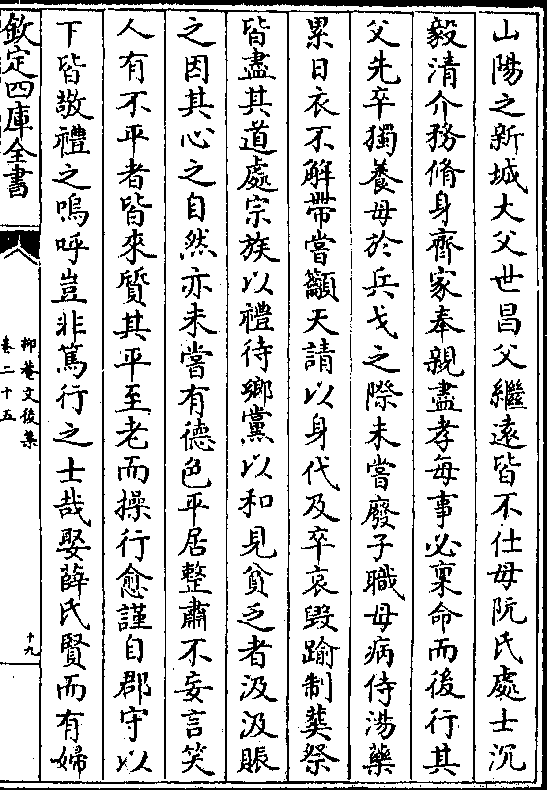 山陽之新城大父世昌父繼遠皆不仕母阮氏處士沉
毅清介務脩身齊家奉親盡孝每事必稟命而後行其
父先卒獨養母於兵戈之際未嘗廢子職母病侍湯藥
累日衣不解帶嘗籲天請以身代及卒哀毀踰制葬祭
皆盡其道處宗族以禮待鄉黨以和見貧乏者汲汲賑
之因其心之自然亦未嘗有德色平居整肅不妄言笑
人有不平者皆來質其平至老而操行愈謹自郡守以
下皆敬禮之嗚呼豈非篤行之士哉娶薛氏賢而有婦
欽定四庫全書
抑菴文後集
卷二十五
十九